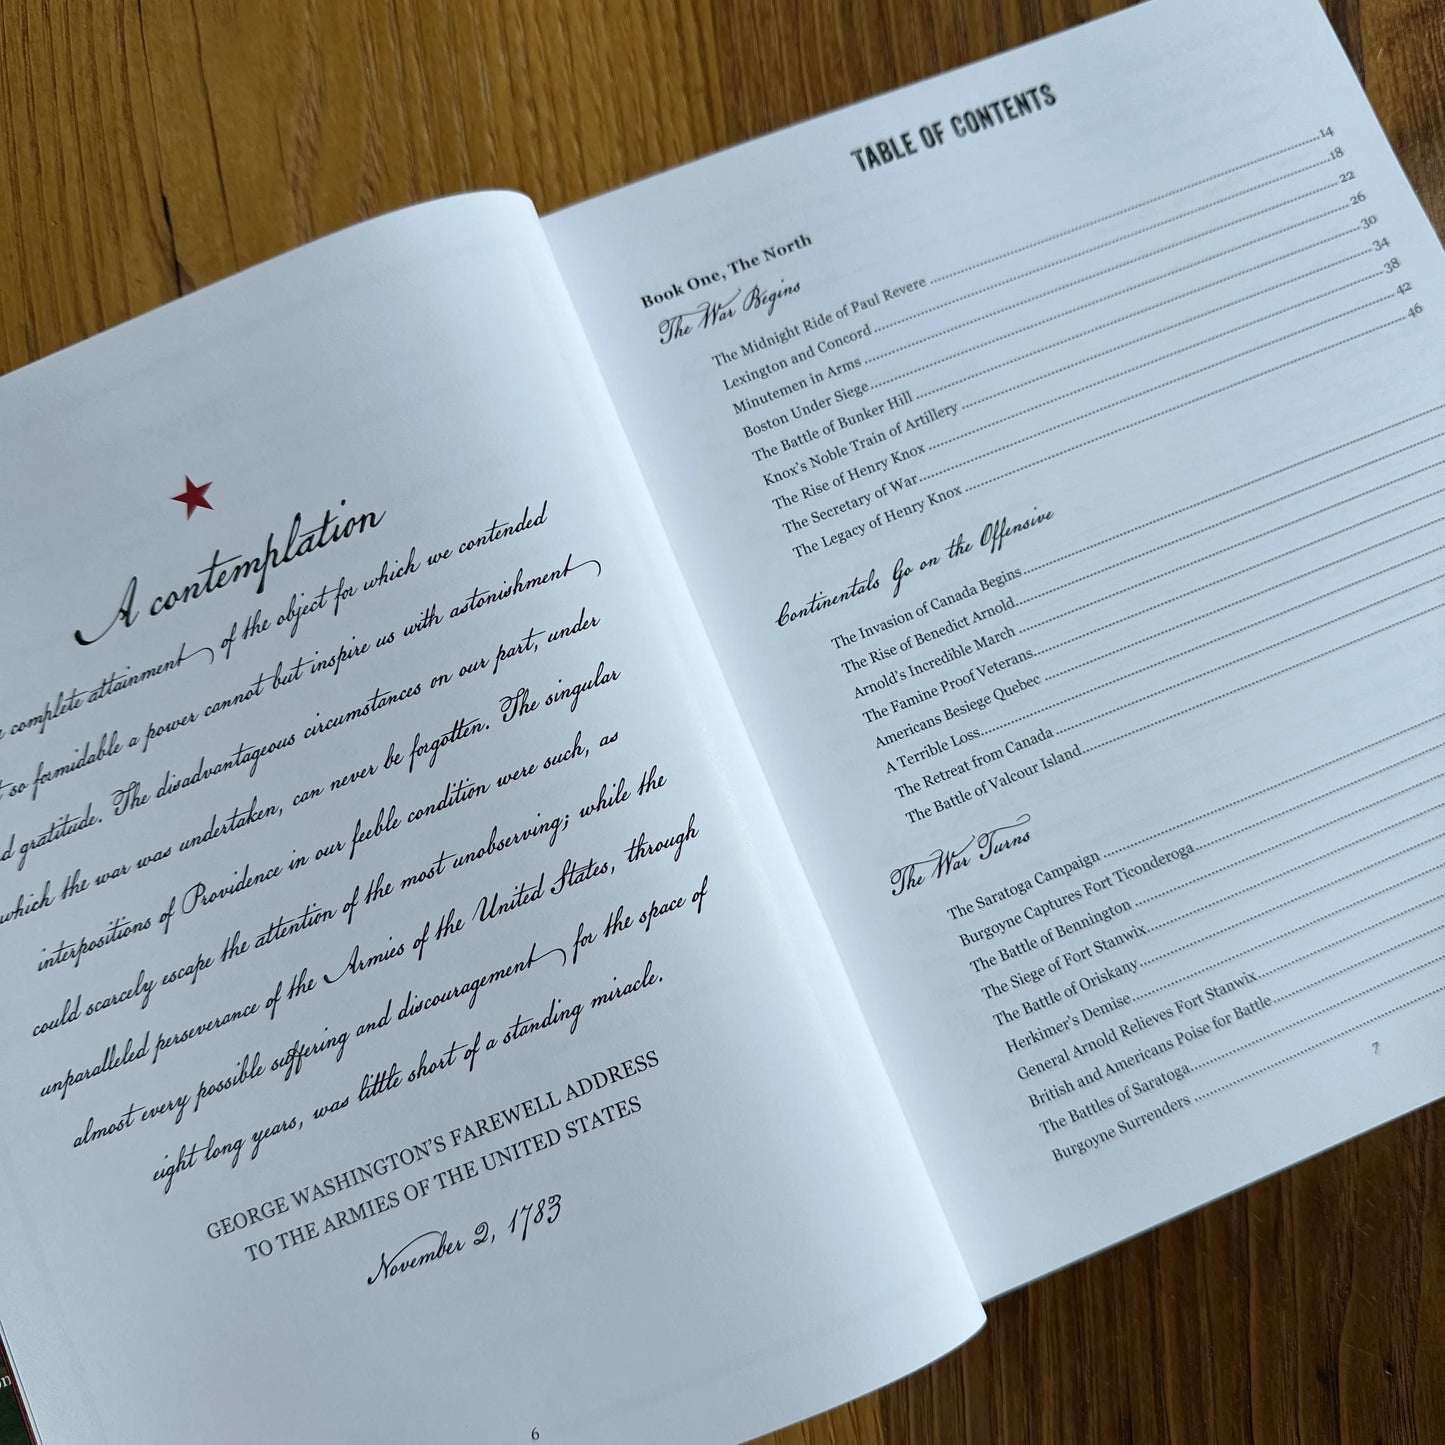 A contemplation
complete attainment of the object for which we contended
so formidable a power cannot but inspire us with astonishment
gratitude. The disadvantageous circumstances on our part, under
which the war was undertaken, can never be forgotten. The singular
interpositions of Providence in our feeble condition were such, as
could scarcely escape the attention of the most unobserving; while the
unparalleled perseverance of the Armies of the United States, through
almost every possible suffering and discouragement for the space of
eight long years, was little short of a standing miracle.
GEORGE WASHINGTON'S FAREWELL ADDRESS
TO THE ARMIES OF THE UNITED STATES
November 2, 1783
6
TABLE OF CONTENTS
Book One, The North
The War Begins
The Midnight Ride of Paul Revere 14
Lexington and Concord 18
Minutemen in Arms 22
Boston Under Siege 26
The Battle of Bunker Hill 30
Knox's Noble Train of Artillery 34
The Rise of Henry Knox 38
The Secretary of War 42
The Legacy of Henry Knox 46
Continentals Go on the Offensive
The Invasion of Canada Begins
The Rise of Benedict Arnold
Arnold's Incredible March
The Famine Proof Veterans
Americans Besiege Quebec
A Terrible Loss
The Retreat from Canada
The Battle of Valcour Island
The War Turns
The Saratoga Campaign
Burgoyne Captures Fort Ticonderoga
The Battle of Bennington
The Siege of Fort Stanwix
The Battle of Oriskany
Herkimer's Demise
General Arnold Relieves Fort Stanwix
British and Americans Poise for Battle
The Battles of Saratoga
Burgoyne Surrenders
7